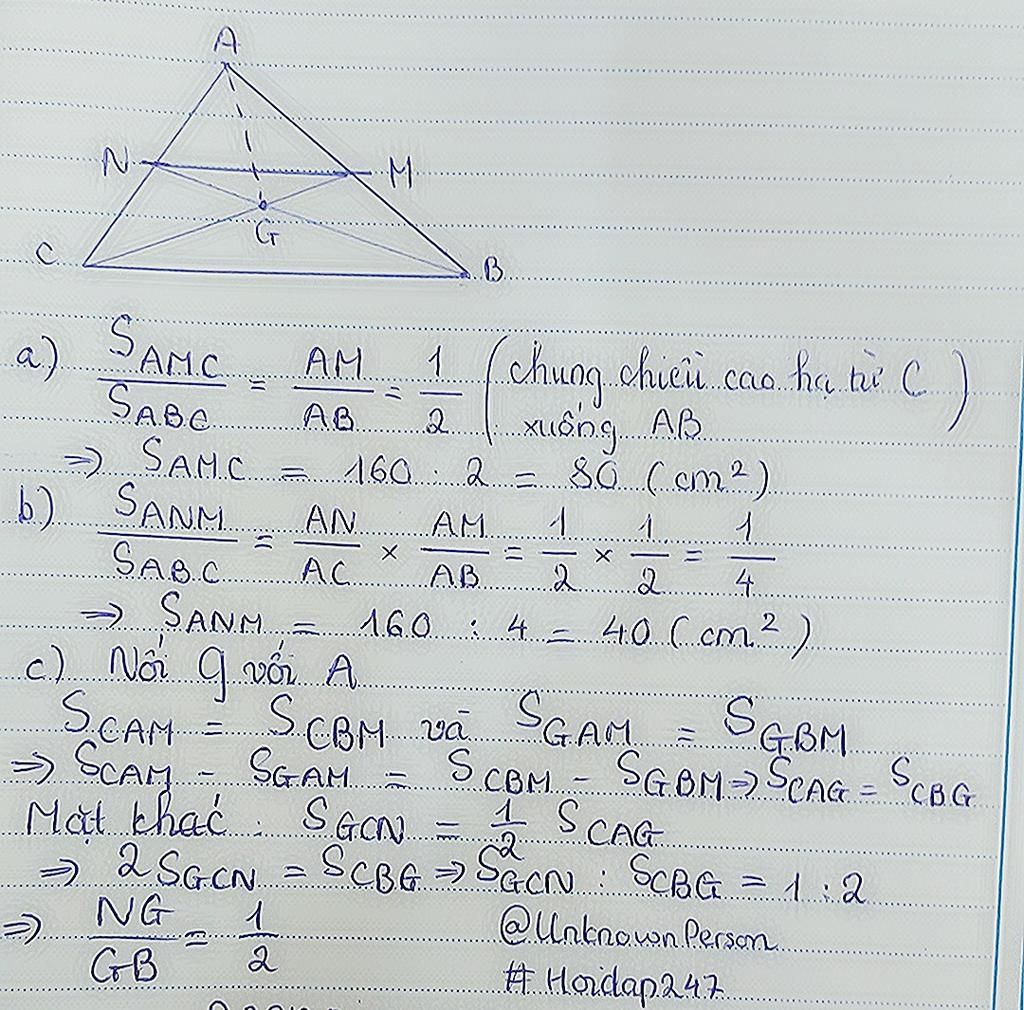 A
N M
G
C B
a) S_AMC / S_ABC = AM / AB = 1 / 2 (chung chiều cao hạ từ C xuống AB)
⇒ S_AMC = 160 : 2 = 80 (cm²)
b) S_ANM / S_ABC = AN / AC × AM / AB = 1 / 2 × 1 / 2 = 1 / 4
⇒ S_ANM = 160 : 4 = 40 (cm²)
c) Nối G với A
S_CAM = S_CBM và S_GAM = S_GBM
⇒ S_CAM - S_GAM = S_CBM - S_GBM ⇒ S_CAG = S_CBG
Mặt khác : S_GCN = 1 / 2 S_CAG
⇒ 2 S_GCN = S_CBG ⇒ S_GCN : S_CBG = 1 : 2
⇒ NG / GB = 1 / 2
@UnknownPerson
# Hoidap247